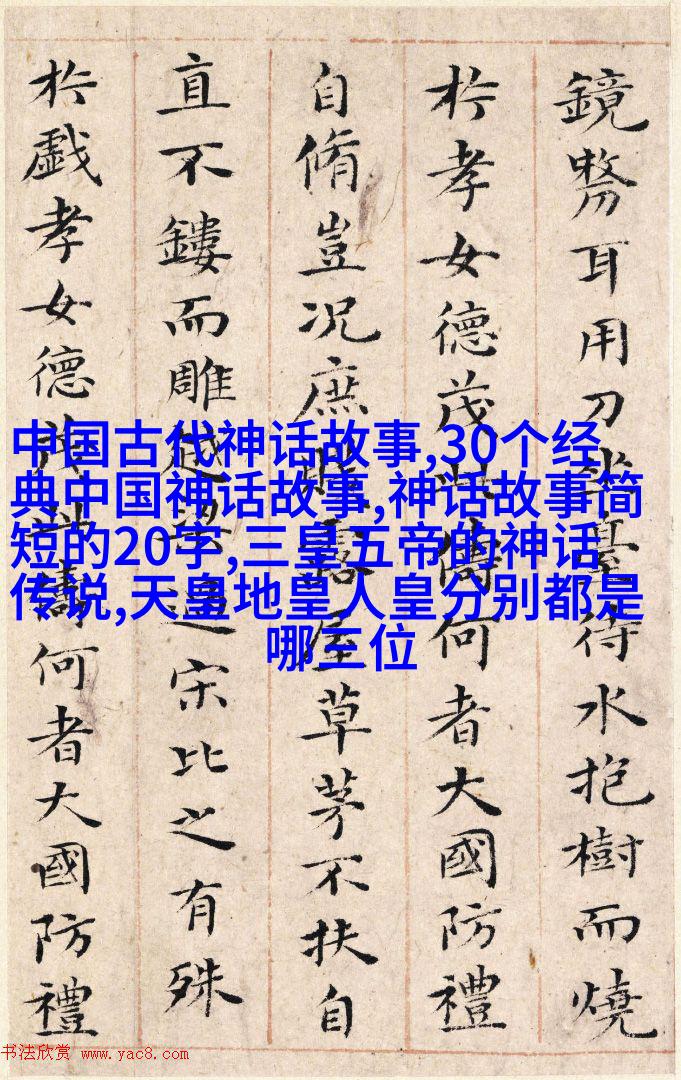 鏡剺耳用刀坐臺待水抱樹而燒
於孝女德茂此儔何者大國防禮
自脩豈况庶賤露屋草茅不扶自
直不鏤而雕越梁過宋比之有殊
於戲孝女德茂此儔何者大國防禮
中国古代神话故事,30个经
典中国神话故事,神话故事简
短的20字,三皇五帝的神话
传说,天皇地皇人皇分别都是
哪三位
书法欣赏 www.yac8.com